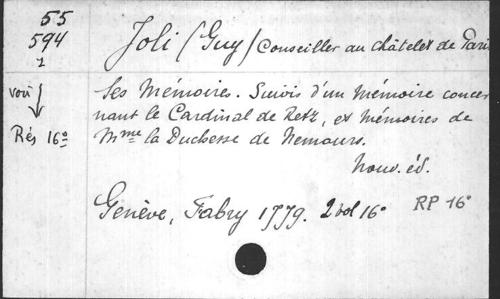 55
594
1
Joli (Guy) Conseiller au châtelet de Paris
voir
Rés 16º
Ses Mémoires. Suivis d'un Mémoire concer
nant le Cardinal de Retz, et Mémoires de
Mme la Duchesse de Nemours.
Nouv. éd.
Genève, Fabry 1779. 2 vol 16º RP 16º